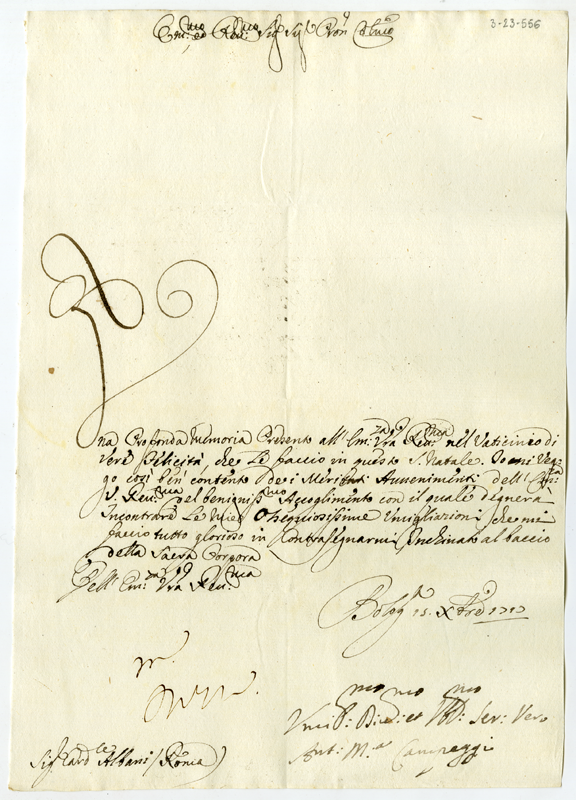 3-23-556
Em:mo ed Reu:mo Sig.r Sig.r Pron Col:mo
Una Profonda Memoria Presento all' Em:za V.ra Reu:ma nel Vaticinio di
Vere Felicità, che Le faccio in questo S. Natale. Io mi Veg-
go così ben contento dei Meriti Auuenimenti dell'
V. Reu:ma del benigniss:mo Accoglimento con il quale degnerà
Incontrare Le Miei Ossequiosissime Umigliazioni, che mi
faccio tutto glorioso in Contrasegnarmi, Inchinato al baccio
della Sacra Porpora
Dell' Em:za V.ra Reu:ma
Bolog.a 15. Xbre
Umil:mo Diu:mo et Obl:mo Ser: Vero
Ant: M.a Campeggi
Sig.r Card.le Albani / Roma)